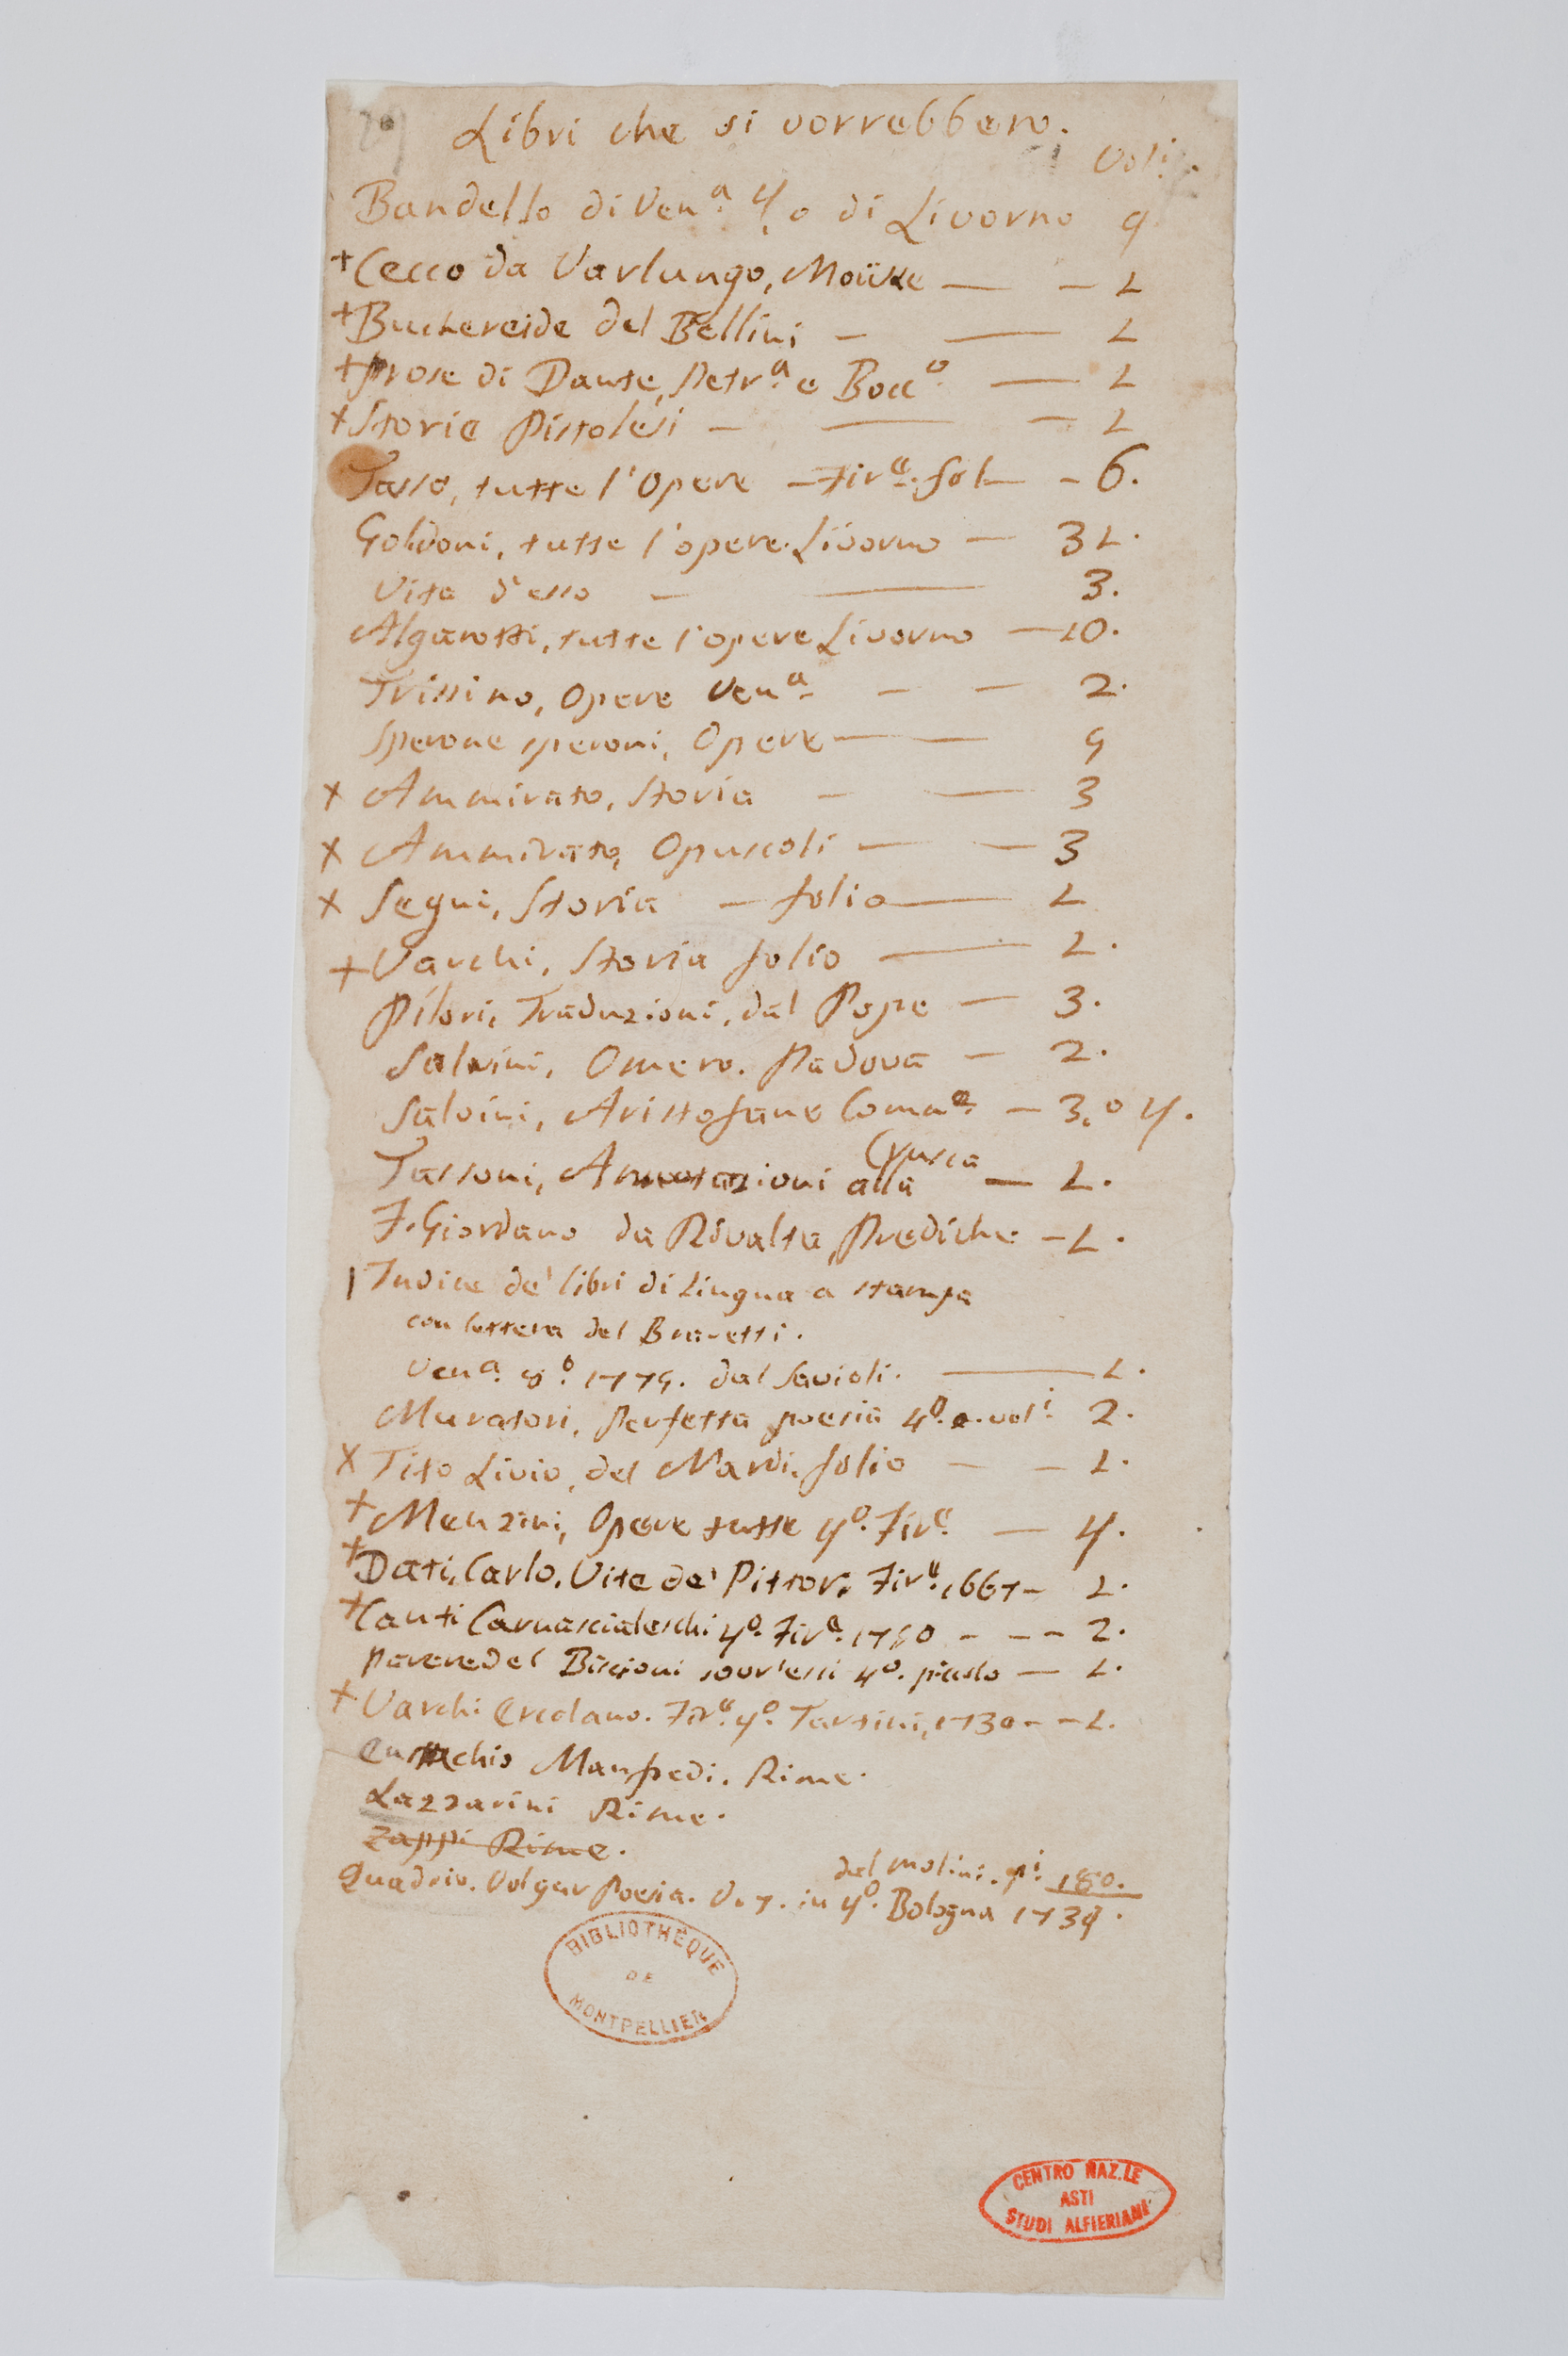 Libri che si vorrebbero.
Voli.
Bandello di Ven.a 4. o di Livorno 9
+ Cecco da Varlungo, Moüke — — 1
+ Buchereide del Bellini — — 1
+ Prose di Dante, Petr.a e Bocc.o — 1
+ Storie Pistolesi — — — 1
Tasso, tutte l'Opere — Fir.e fol — - 6.
Goldoni, tutte l'opere. Livorno — 31.
Vita d'esso — — 3.
Algarotti, tutte l'opere Livorno — 10.
Trissino, Opere Ven.a — — 2.
Sperone speroni, Opere — — 5
x Ammirato, Storia — — 3
x Ammirato, Opuscoli — — 3
x Segni, Storia — folio — 1
+ Varchi, Storia folio — 1.
Pilori, Traduzioni, dal Pope — 3.
Salvini, Omero. Padova — 2.
Salvini, Aristofane Com — 3. o 4.
Crusca
Tassoni, Annotazioni alla — 1.
F. Giordano da Rivalta, Prediche — 1.
Indice de' libri di Lingua a stampa
con lettera del Bravetti.
Ven.a 8.o 1775. dal Savioli. — 1.
Muratori, Perfetta poesia 4.o vol.i 2.
x Tito Livio, del Nardi. folio — — 1.
+ Menzini, Opere tutte 4.o Fir.e — 4.
+ Dati, Carlo, Vite de' Pittori Fir.e 1667 — 1.
+ Canti Carnascialeschi 4.o Fir.e 1750 - — — 2.
parere del Biscioni sovr'essi 4.o piccolo — 1.
+ Varchi Ercolano. Fir.e 4.o Tartini, 1730 — — 1.
Eustachio Manfredi. Rime.
Lazzarini Rime.
Zappi Rime.
dal Molini. p.i 180.
Quadrio. Volgar Poesia. V. 7. in 4.o Bologna 1739.
BIBLIOTHÈQUE
DE
MONTPELLIER
CENTRO NAZ.LE
ASTI
STUDI ALFIERIANI